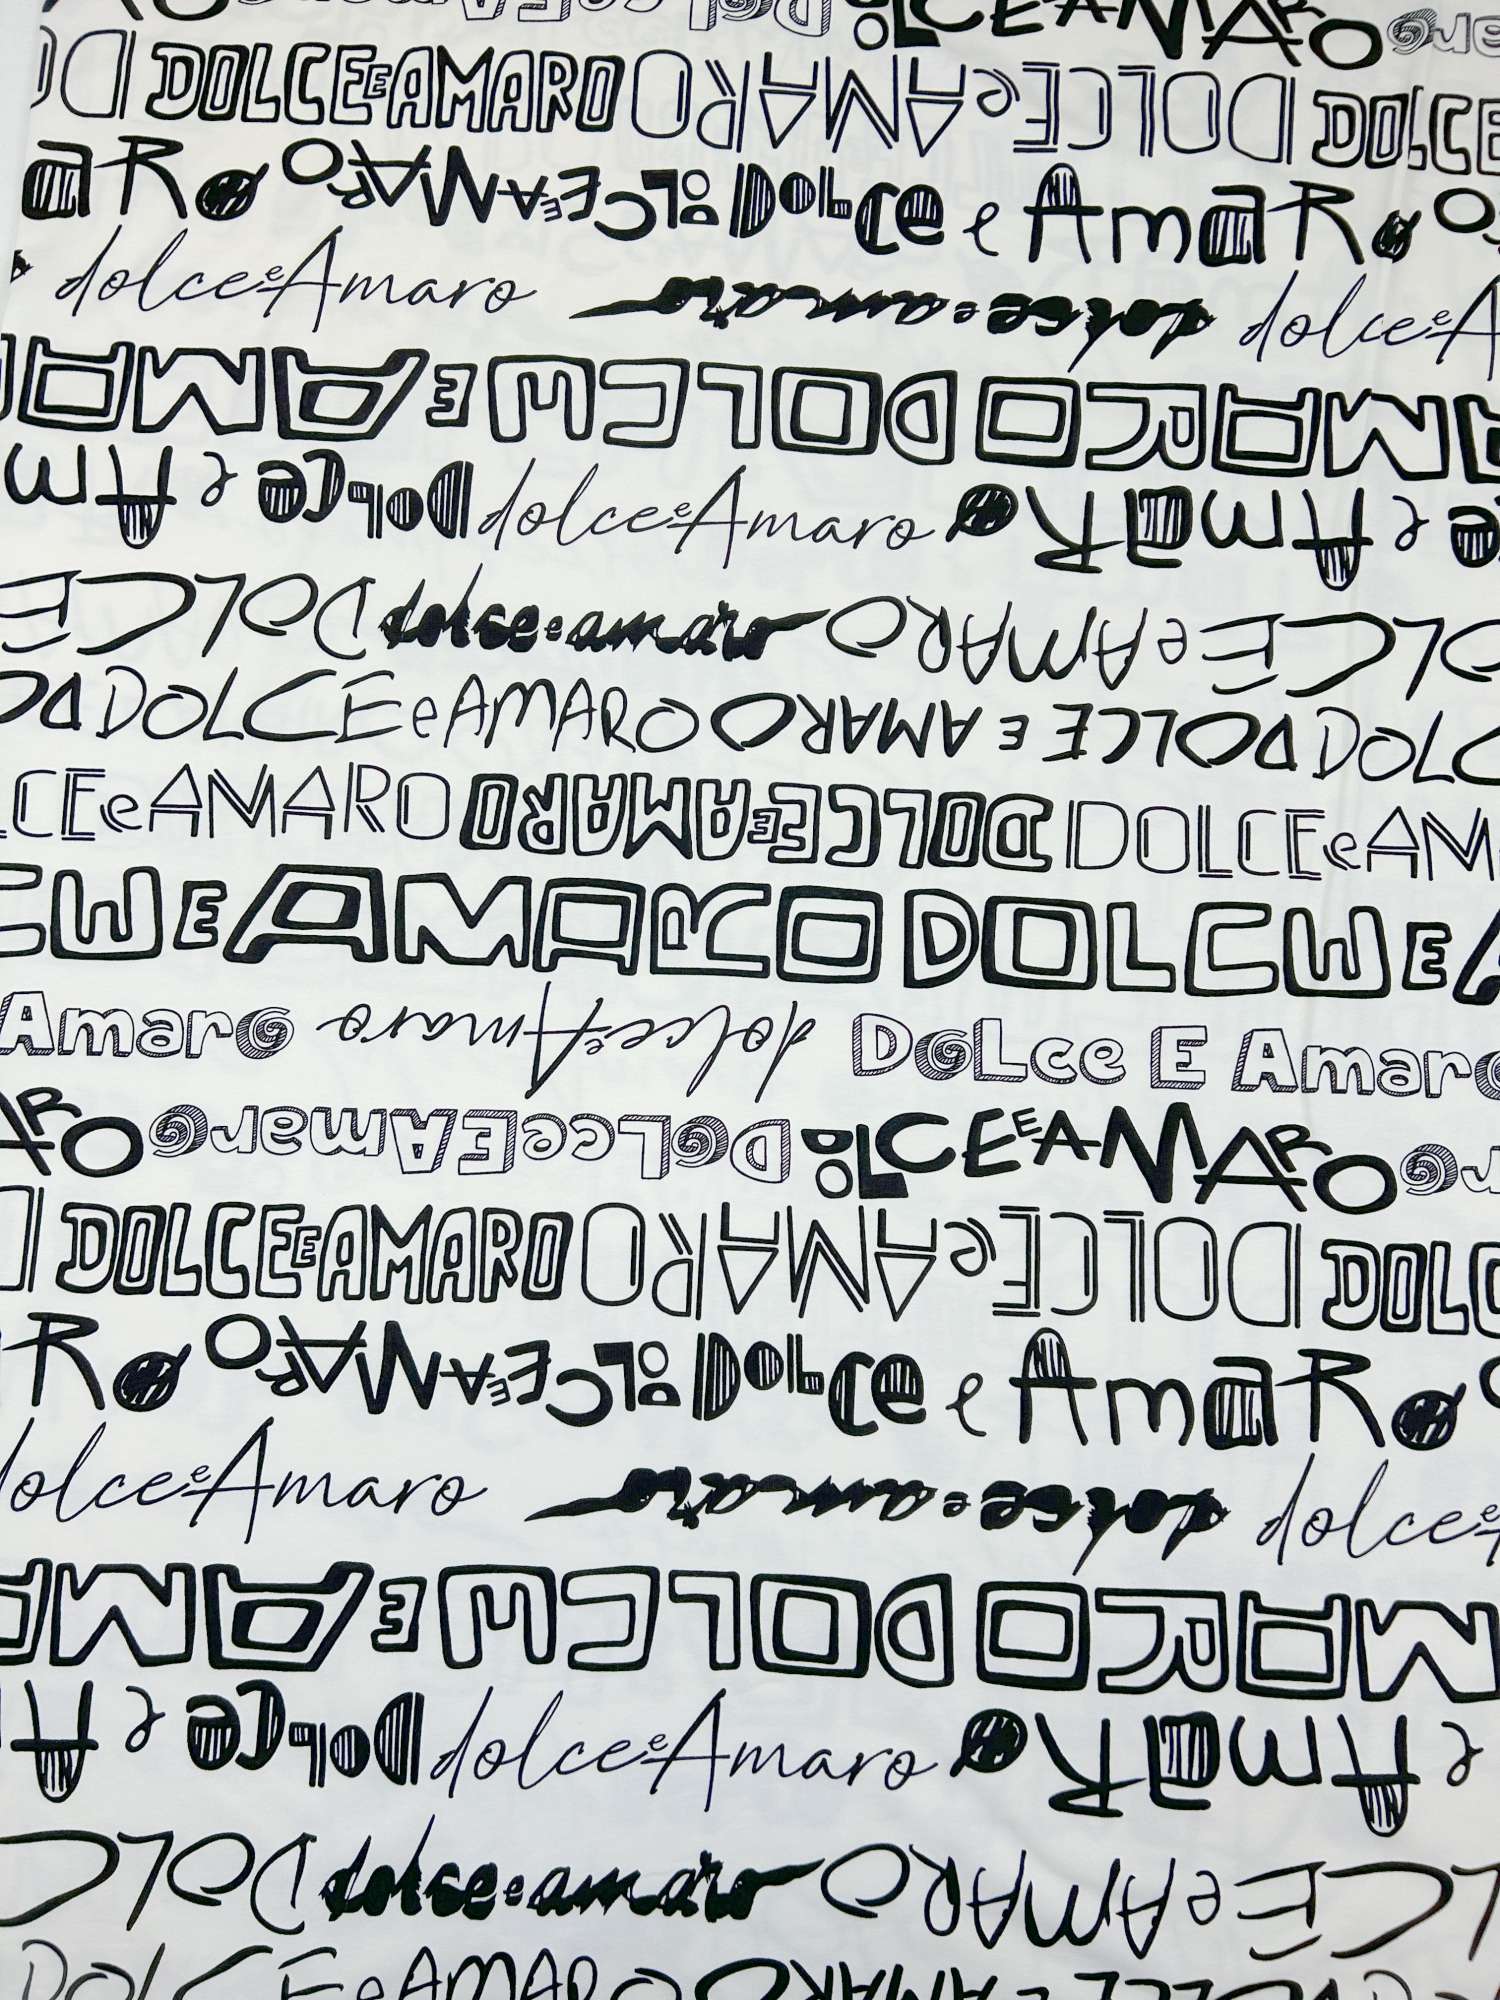 DOLCE E AMARO
DOLCE E AMARO DOLCE e AMARO DOLCE
aR o DOLCE E AMARO DoLce e AmaR o
dolce e Amaro dolce e amaro dolce e A
AMA DOLCE E AMARO DOLCE E AMA
DoLce e Am dolce e Amaro e AmaR o
DOLCE dolce e amaro DOLCE e AMARO
DO DOLCE e AMARO DOLCE E AMARO DOLC
LCE e AMARO DOLCE E AMARO DOLCE e AM
CE E AMARO DOLCE E A
Amaro dolce e Amaro DoLce E Amaro
ARO DoLce E Amaro DOLCE E AMARO
DOLCE E AMARO DOLCE e AMARO DOLC
R o DOLCE E AMARO DoLce e AmaR o
dolce e Amaro dolce e amaro dolce e
AMA DOLCE E AMARO DOLCE E AM
DoLce e A dolce e Amaro e AmaR o
DOLC dolce e amaro DOLCE e AMARO
DOLCE e AMARO DOLCE E AMARO